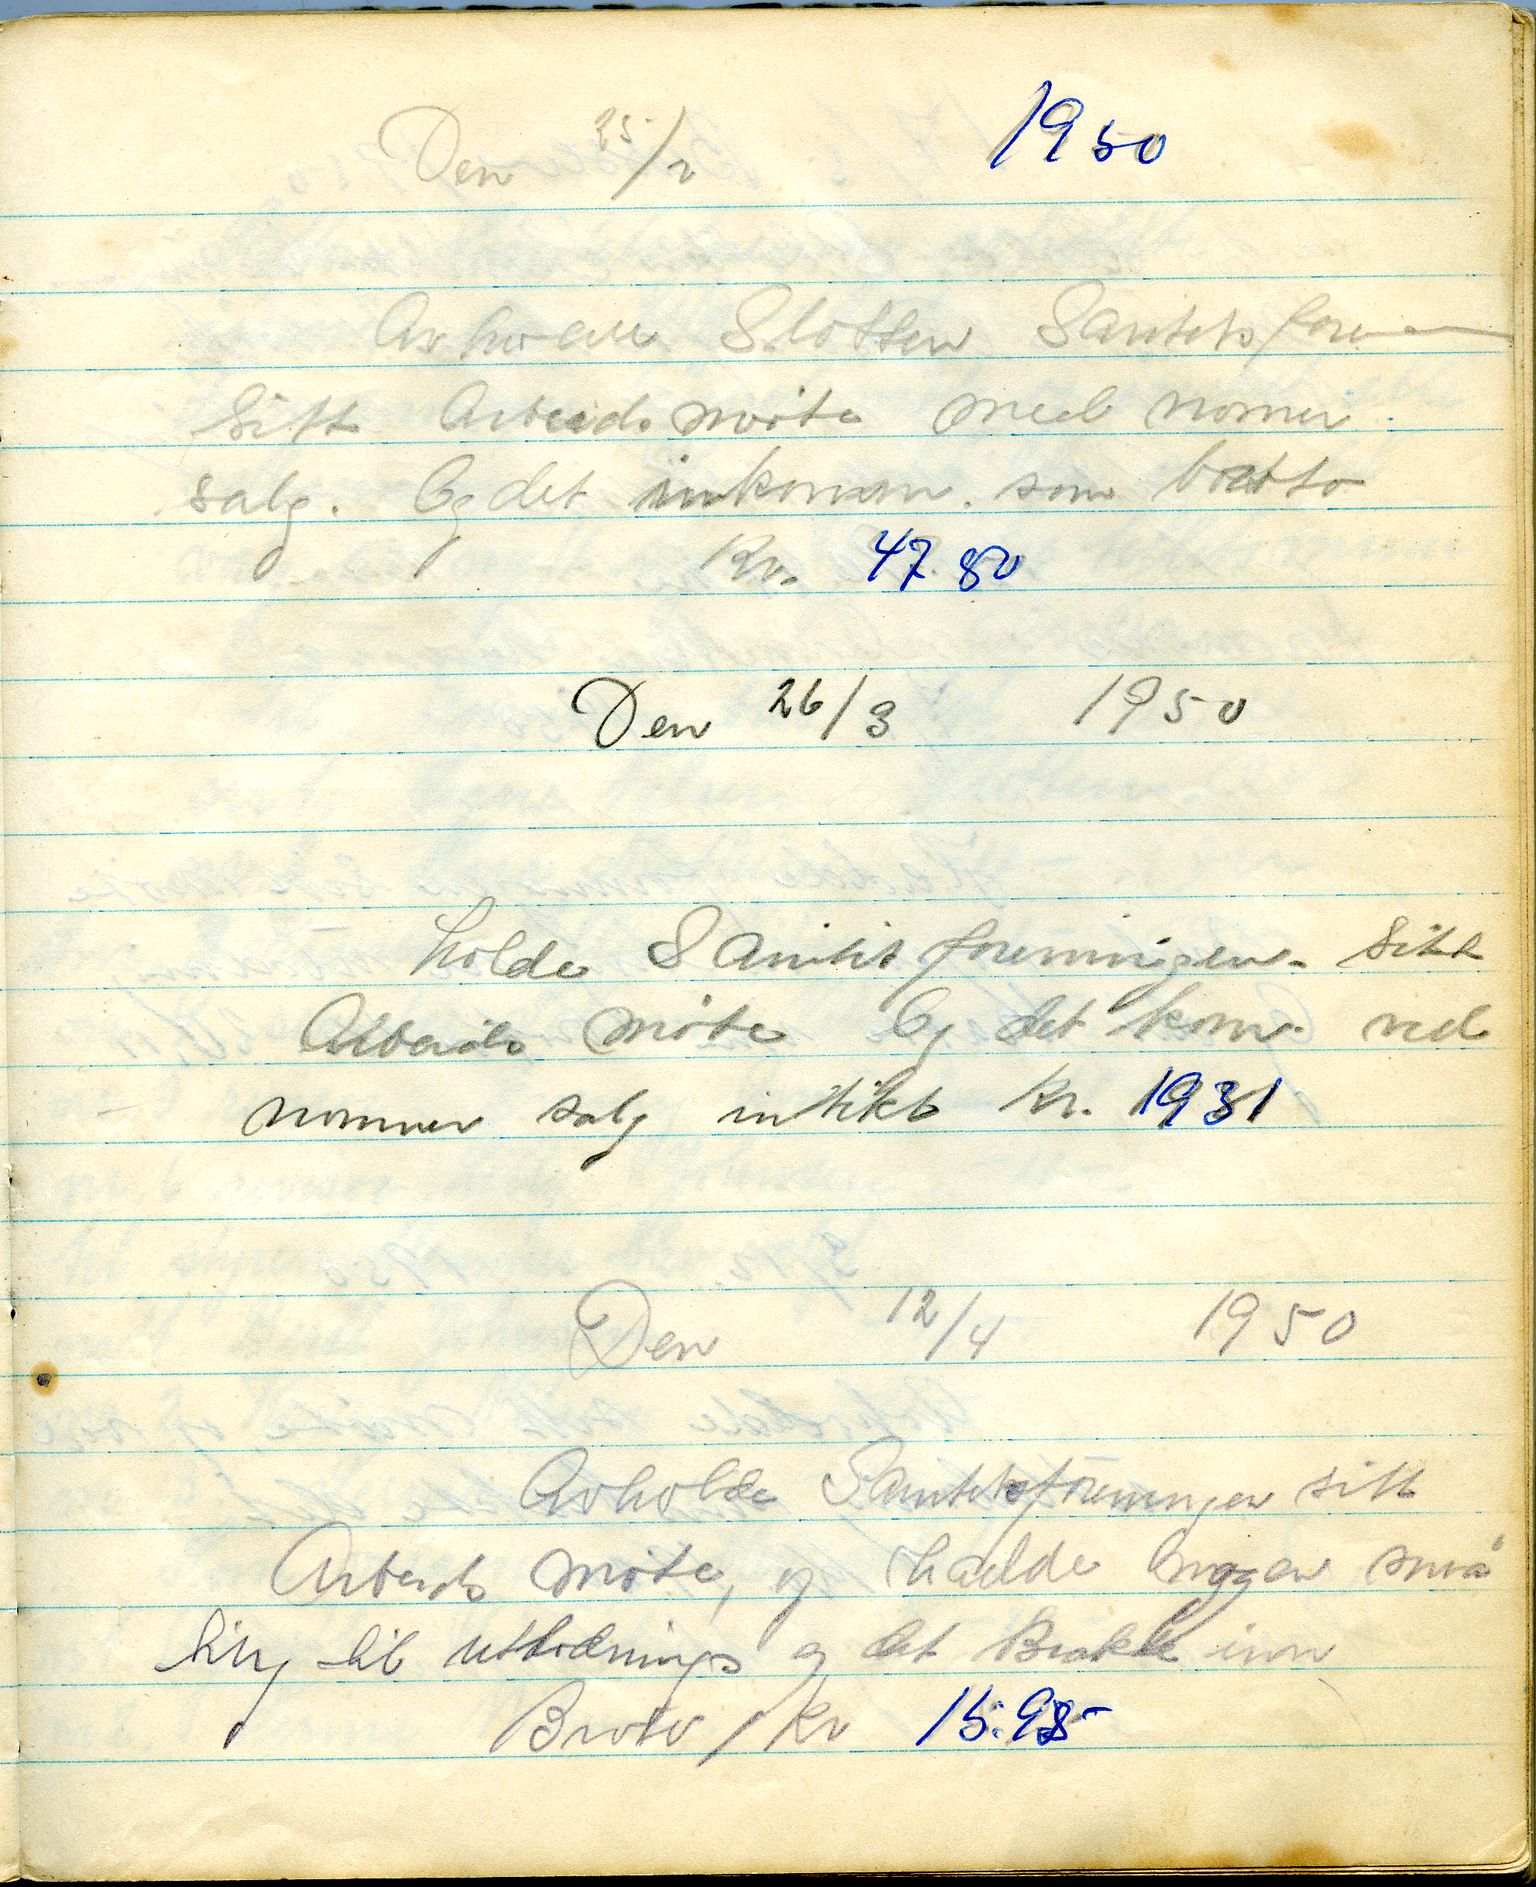 Den 25/2 1950
Avholde Slotten Sanitetsforen
Sitt Arbeids møte med nomer
salg. Og det innkomm. som brotto
Kr. 47 80
Den 26/3 1950
holde Sanitetsforeningen sitt
Arbeids møte Og det kom ved
nommer salg intikt Kr. 1931
Den 12/4 1950
Avholde Sanitetsforeningen sitt
Arbeids møte, og hadde noggen små
ting til utlodnings og det Brakte inn
Broto / Kr 15.95